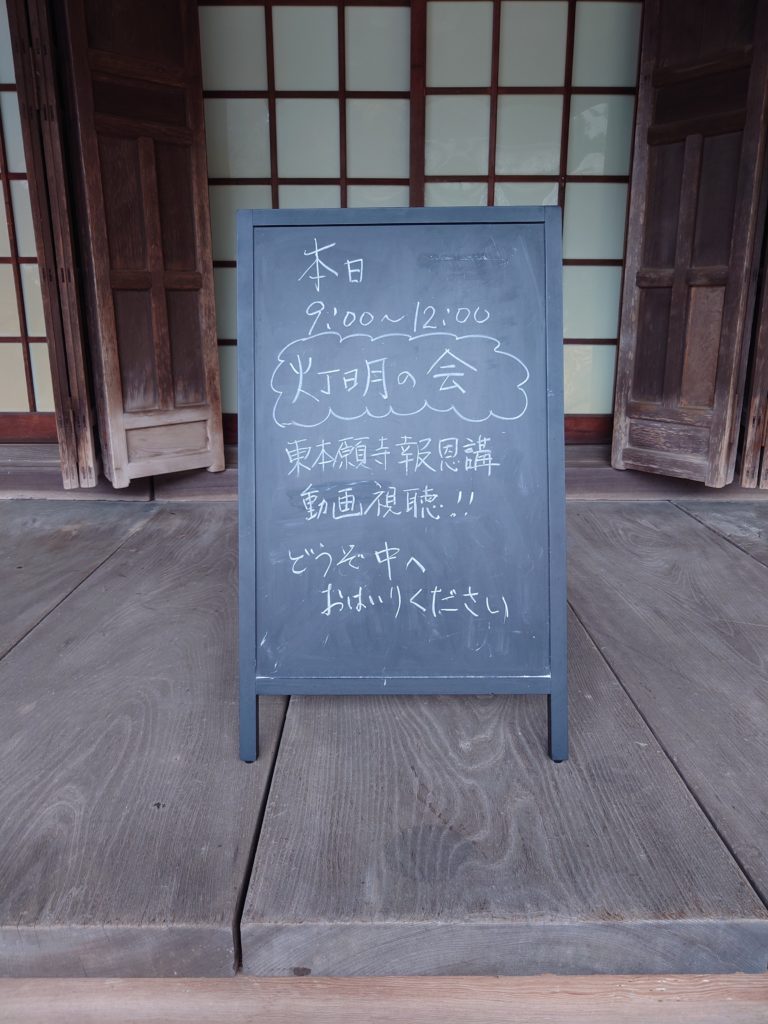 本日
9:00~12:00
灯明の会
東本願寺報恩講
動画視聴!!
どうぞ中へ
おはいりください